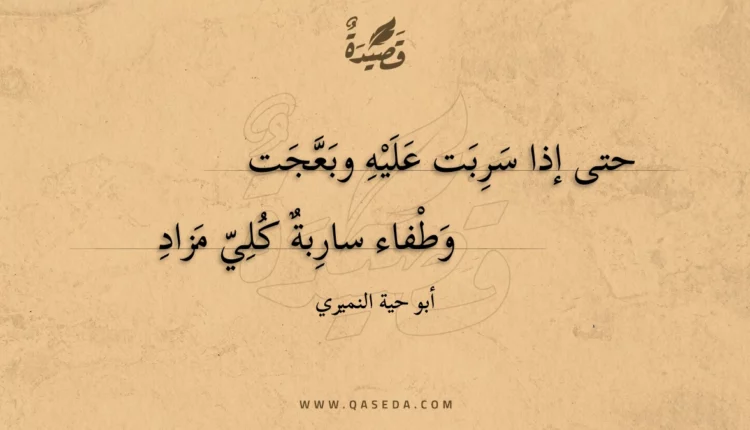 قَصِيْدَةٌ
حتى إذا سَرِبَت عَلَيْهِ وبَعَّجَت
وَطْفاء سارِبةٌ كُلِيّ مَزادِ
أبو حية النميري
WWW.QASEDA.COM